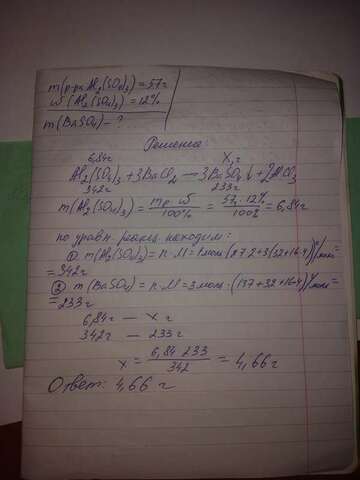 m(р-ра Al₂(SO₄)₃) = 57г
ω(Al₂(SO₄)₃) = 12%
m(BaSO₄) - ?
Решение:
6,84г X, г
Al₂(SO₄)₃ + 3BaCl₂ — 3BaSO₄↓ + 2AlCl₃
342г 233г
m(Al₂(SO₄)₃) = mр. ω / 100% = 57г. 12% / 100% = 6,84г
по уравн. реакц. находим:
① m(Al₂(SO₄)₃) = n·M = 1моль·(27·2+3(32+16·4))г/моль =
= 342г
② m(BaSO₄) = n·M = 3моль·(137+32+16·4)г/моль =
= 233г
6,84г — x г
342г — 233г
x = 6,84·233 / 342 = 4,66г
Ответ: 4,66 г